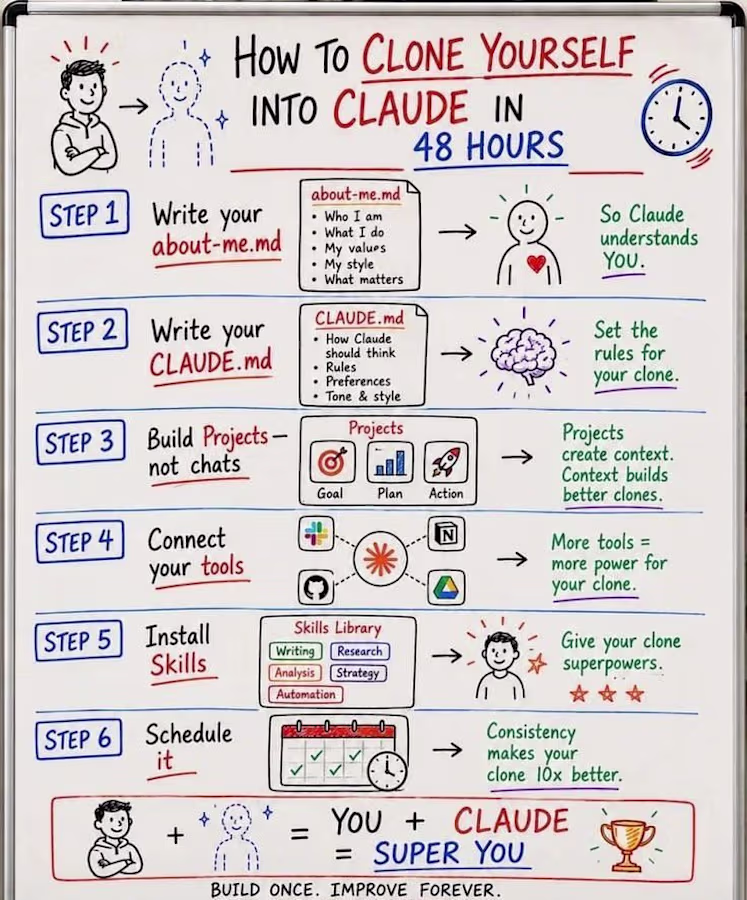 HOW TO CLONE YOURSELF
INTO CLAUDE IN
48 HOURS
STEP 1
Write your
about-me.md
about-me.md
• Who I am
• What I do
• My values
• My style
• What matters
So Claude
understands
YOU.
STEP 2
Write your
CLAUDE.md
CLAUDE.md
• How Claude
should think
• Rules
• Preferences
• Tone & style
Set the
rules for
your clone.
STEP 3
Build Projects—
not chats
Projects
Goal
Plan
Action
Projects
create context.
Context builds
better clones.
STEP 4
Connect
your tools
N
More tools =
more power for
your clone.
STEP 5
Install
Skills
Skills Library
Writing
Research
Analysis
Strategy
Automation
Give your clone
superpowers.
STEP 6
Schedule
it
Consistency
makes your
clone 10x better.
+ = YOU + CLAUDE
= SUPER YOU
BUILD ONCE. IMPROVE FOREVER.